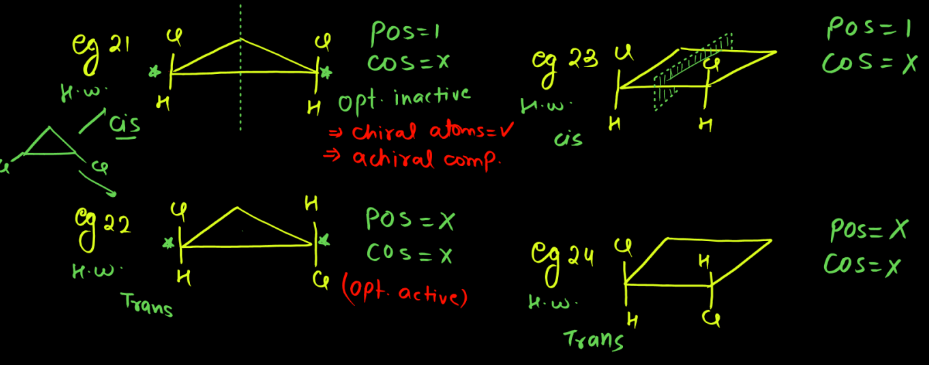 eg 21
H.W.
Cl
H
*
Cl
H
*
POS=1
COS=X
opt. inactive
⇒ chiral atoms=✓
⇒ achiral comp.
cis
Cl
Cl
eg 22
H.W.
Trans
Cl
H
*
H
Cl
*
POS=X
COS=X
(opt. active)
eg 23
H.W.
cis
Cl
H
Cl
H
POS=1
COS=X
eg 24
H.W.
Trans
Cl
H
H
Cl
POS=X
COS=X